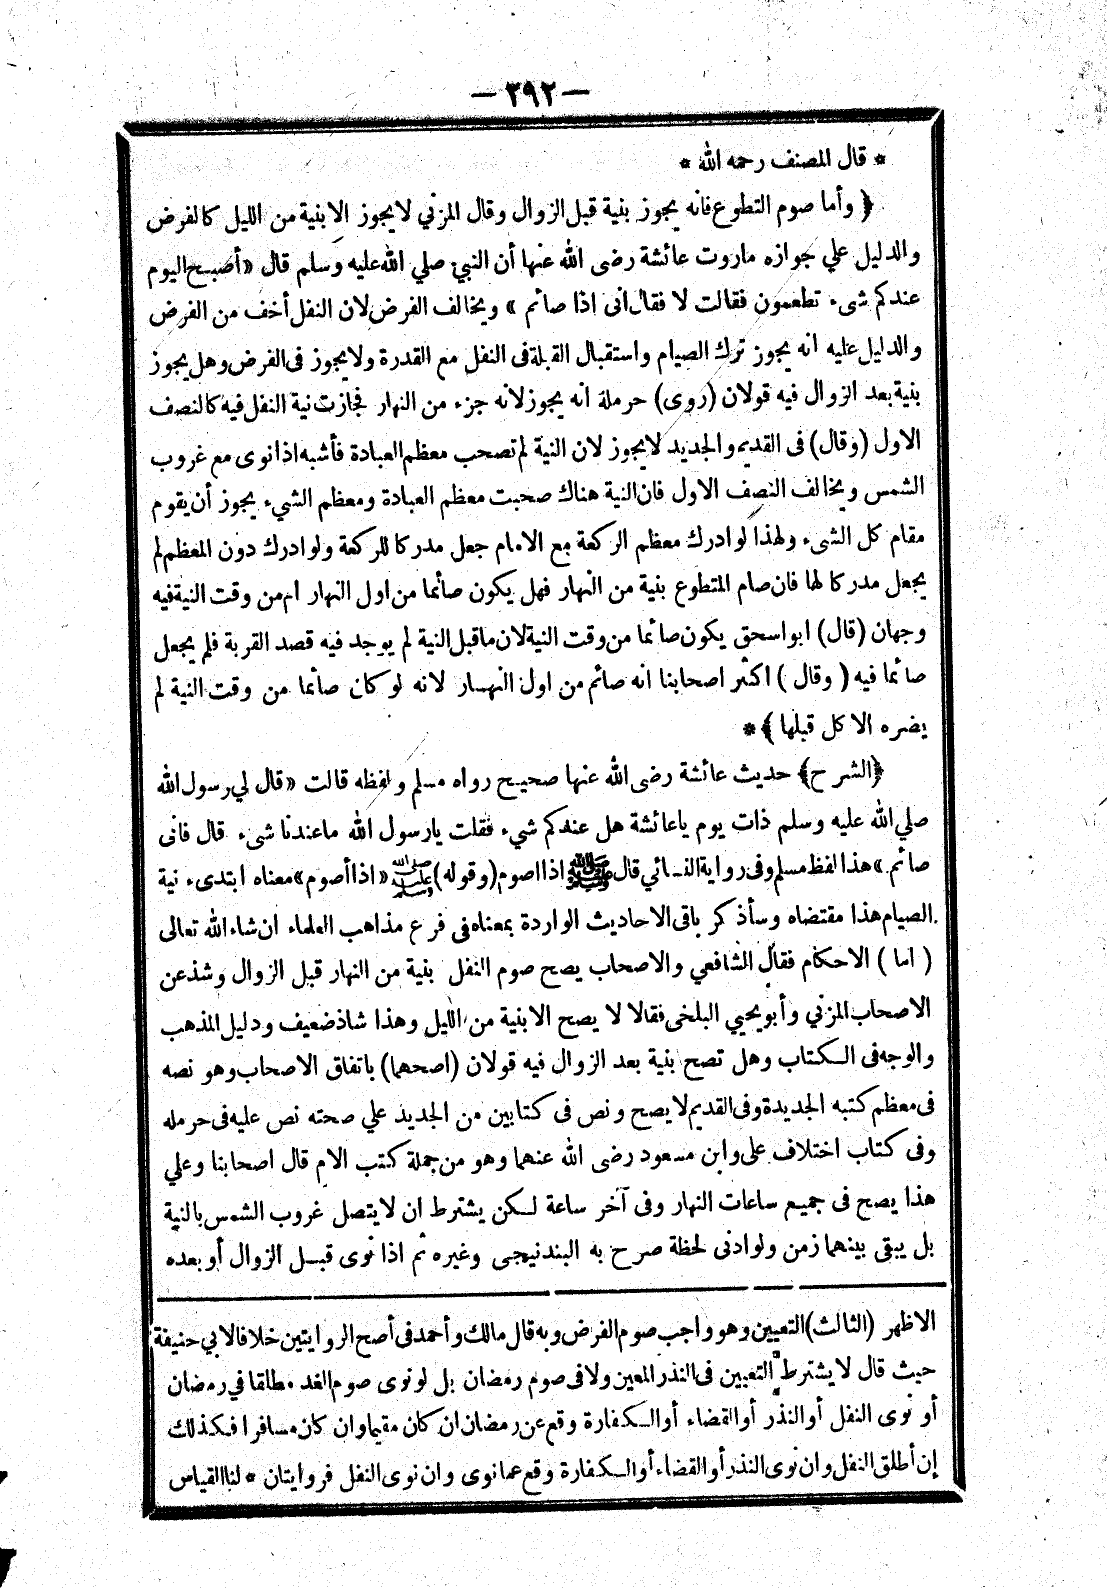 — ٢٩٢ —
* قال المصنف رحمه الله *
﴿ وأما صوم التطوع فانه يجوز بنية قبل الزوال وقال المزني لا يجوز الا بنية من الليل كالفرض
والدليل علي جوازه ماروت عائشة رضى الله عنها أن النبي صلي الله عليه وسلم قال «أصبح اليوم
عندكم شىء تطعمون فقالت لا فقال انى اذا صائم » ويخالف الفرض لان النفل أخف من الفرض
والدليل عليه انه يجوز ترك الصيام واستقبال القبلة فى النفل مع القدرة ولا يجوز فى الفرض وهل يجوز
بنية بعد الزوال فيه قولان (روى) حرملة انه يجوز لانه جزء من النهار فجازت نية النفل فيه كالنصف
الاول (وقال) فى القديم والجديد لا يجوز لان النية لم تصحب معظم العبادة فأشبه اذا نوى مع غروب
الشمس ويخالف النصف الاول فان النية هناك صحبت معظم العبادة ومعظم الشيء يجوز أن يقوم
مقام كل الشىء ولهذا لو ادرك معظم الركعة مع الامام جعل مدركا للركعة ولو ادرك دون المعظم لم
يجعل مدركا لها فان صام المتطوع بنية من النهار فهل يكون صائما من اول النهار ام من وقت النية فيه
وجهان (قال) ابو اسحق يكون صائما من وقت النية لان ما قبل النية لم يوجد فيه قصد القربة فلم يجعل
صائما فيه ( وقال ) اكثر اصحابنا انه صائم من اول النهار لانه لو كان صائما من وقت النية لم
يضره الاكل قبلها ﴾ *
﴿الشرح﴾ حديث عائشة رضى الله عنها صحيح رواه مسلم ولفظه قالت «قال لي رسول الله
صلي الله عليه وسلم ذات يوم ياعائشة هل عندكم شيء فقلت يارسول الله ماعندنا شىء قال فانى
صائم » هذا لفظ مسلم وفى رواية النسائي قال ﷺ اذا اصوم (وقوله) ﷺ «اذا أصوم» معناه ابتدىء نية
الصيام هذا مقتضاه وسأذكر باقى الاحاديث الواردة بمعناه فى فرع مذاهب العلماء ان شاء الله تعالى
( اما ) الاحكام فقال الشافعي والاصحاب يصح صوم النفل بنية من النهار قبل الزوال وشذ عن
الاصحاب المزني وأبو يحيي البلخى فقالا لا يصح الا بنية من الليل وهذا شاذ ضعيف ودليل المذهب
والوجه فى الكتاب وهل تصح بنية بعد الزوال فيه قولان (اصحهما) باتفاق الاصحاب وهو نصه
فى معظم كتبه الجديدة وفى القديم لا يصح ونص فى كتابين من الجديد علي صحته نص عليه فى حرمله
وفى كتاب اختلاف على وابن مسعود رضى الله عنهما وهو من جملة كتب الام قال اصحابنا وعلي
هذا يصح فى جميع ساعات النهار وفى آخر ساعة لكن يشترط ان لا يتصل غروب الشمس بالنية
بل يبقى بينهما زمن ولو ادنى لحظة صرح به البندنيجى وغيره ثم اذا نوى قبل الزوال أو بعده
الاظهر (الثالث) التعيين وهو واجب صوم الفرض وبه قال مالك وأحمد فى أصح الروايتين خلافا لابي حنيفة
حيث قال لا يشترط التعيين فى النذر المعين ولا فى صوم رمضان بل لو نوى صوم الغد مطلقا في رمضان
أو نوى النفل أو النذر أو القضاء أو الكفارة وقع عن رمضان ان كان مقيما وان كان مسافرا فكذلك
إن أطلق النفل وان نوى النذر أو القضاء أو الكفارة وقع عما نوى وان نوى النفل فروايتان * لنا القياس